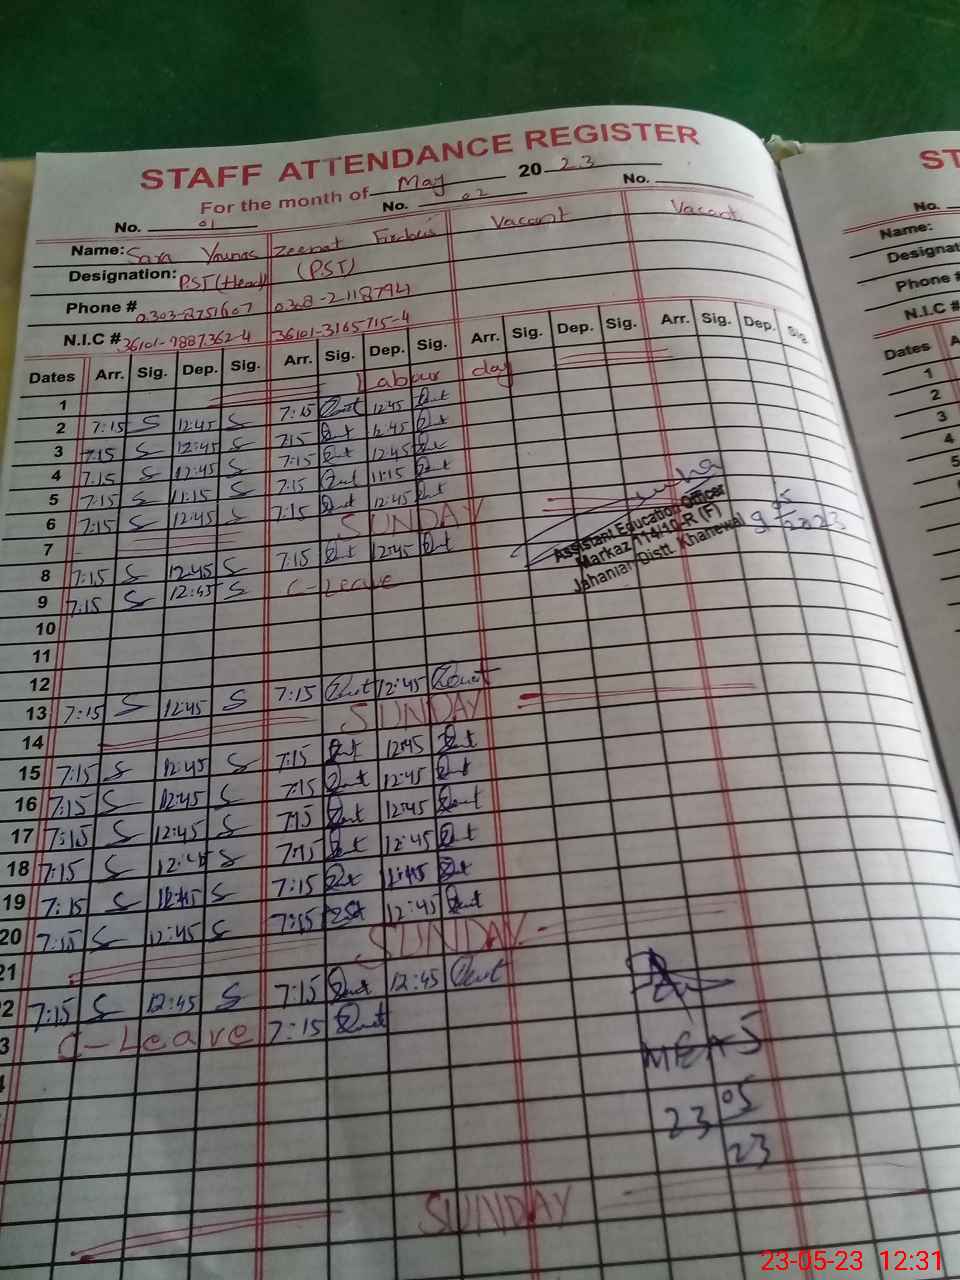 STAFF ATTENDANCE REGISTER
For the month of May 2023
No. 01 No. 02 No.
Name: Sara Younas Zeenat Vacant Vacant
Designation: PST (Head) (PST)
Phone # 0303-8751607 0308-2118794
N.I.C # 36101-9887362-4 36101-3165715-4
Dates Arr. Sig. Dep. Sig. Arr. Sig. Dep. Sig. Arr. Sig. Dep. Sig. Arr. Sig. Dep. Sig.
1 Labour day
2 7:15 S 12:45 S 7:15 12:45
3 7:15 S 12:45 S 7:15 12:45
4 7:15 S 12:45 S 7:15 12:45
5 7:15 S 11:15 S 7:15 11:15
6 7:15 S 12:45 S 7:15 12:45
7 SUNDAY
8 7:15 S 12:45 S 7:15 12:45
9 7:15 S 12:45 S C-Leave
Assistant Education Officer
Markaz 114/10-R (F)
Jahanian Distt. Khanewal
9 05 2023
10
11
12
13 7:15 S 12:45 S 7:15 12:45
14 SUNDAY
15 7:15 S 12:45 S 7:15 12:45
16 7:15 S 12:45 S 7:15 12:45
17 7:15 S 12:45 S 7:15 12:45
18 7:15 S 12:45 S 7:15 12:45
19 7:15 S S 7:15
20 7:15 S 12:45 S 7:15 12:45
21 SUNDAY
2 7:15 S 12:45 S 7:15 12:45
3 C-Leave 7:15
MEA 5
23 05
23
SUNDAY
ST
No.
Name:
Designat
Phone #
N.I.C #
Dates A
1
2
3
4
5
23-05-23 12:31